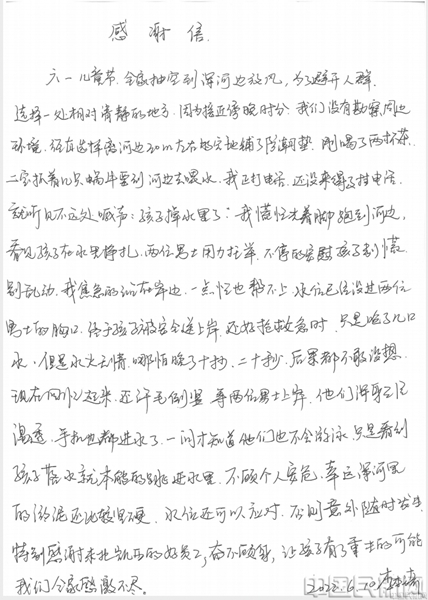 感谢信
六一儿童节，全家抽空到浑河边放风，为了避开人群，
选择一处相对清静的地方，因为接近傍晚时分，我们没有勘察周边
环境，径直选择离河边20m左右的空地铺了防潮垫，刚喝了两杯茶，
二宝扶着几只蜗牛要到河边去喂水，我正打电话，还没来得及挂电话，
就听见不远处喊声：孩子掉水里了！我慌忙光着脚跑到河边，
看见孩子在水里挣扎，两位男士用力托举，不停的安慰孩子别慌
别乱动，我焦急的站在岸边，一点忙也帮不上，水位已经没过两位
男士的胸口，终于孩子被安全送上岸，还好抢救及时，只是呛了几口
水，但是水火无情，哪怕晚了十秒、二十秒，后果都不敢设想。
现在回忆起来，还汗毛倒竖，等两位男士上岸，他们浑身已经
湿透，手机也都进水了，一问才知道他们也不会游泳，只是看到
孩子落水就本能的跳进水里，不顾个人安危，幸运浑河里
的淤泥还比较坚硬，水位还可以应对，否则意外随时发生，
特别感谢来北凯的好员工，奋不顾身，让孩子有了重生的可能
我们全家感激不尽。
2022.6.10